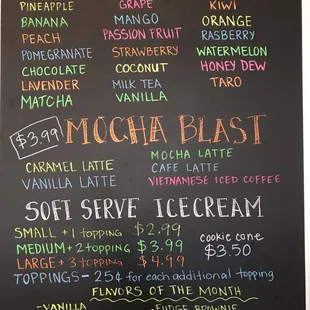 PINEAPPLE GRAPE KIWI
BANANA MANGO ORANGE
PEACH PASSION FRUIT RASBERRY
POMEGRANATE STRAWBERRY WATERMELON
CHOCOLATE COCONUT HONEY DEW
LAVENDER MILK TEA TARO
MATCHA VANILLA
$3.99 MOCHA BLAST
CARAMEL LATTE MOCHA LATTE
VANILLA LATTE CAFE LATTE
VIETNAMESE ICED COFFEE
SOFT SERVE ICECREAM
SMALL + 1 topping $2.99
MEDIUM + 2 topping $3.99
LARGE + 3 topping $4.99
cookie cone
$3.50
TOPPINGS - 25¢ for each additional topping
FLAVORS OF THE MONTH
- VANILLA - FUDGE BROWNIE